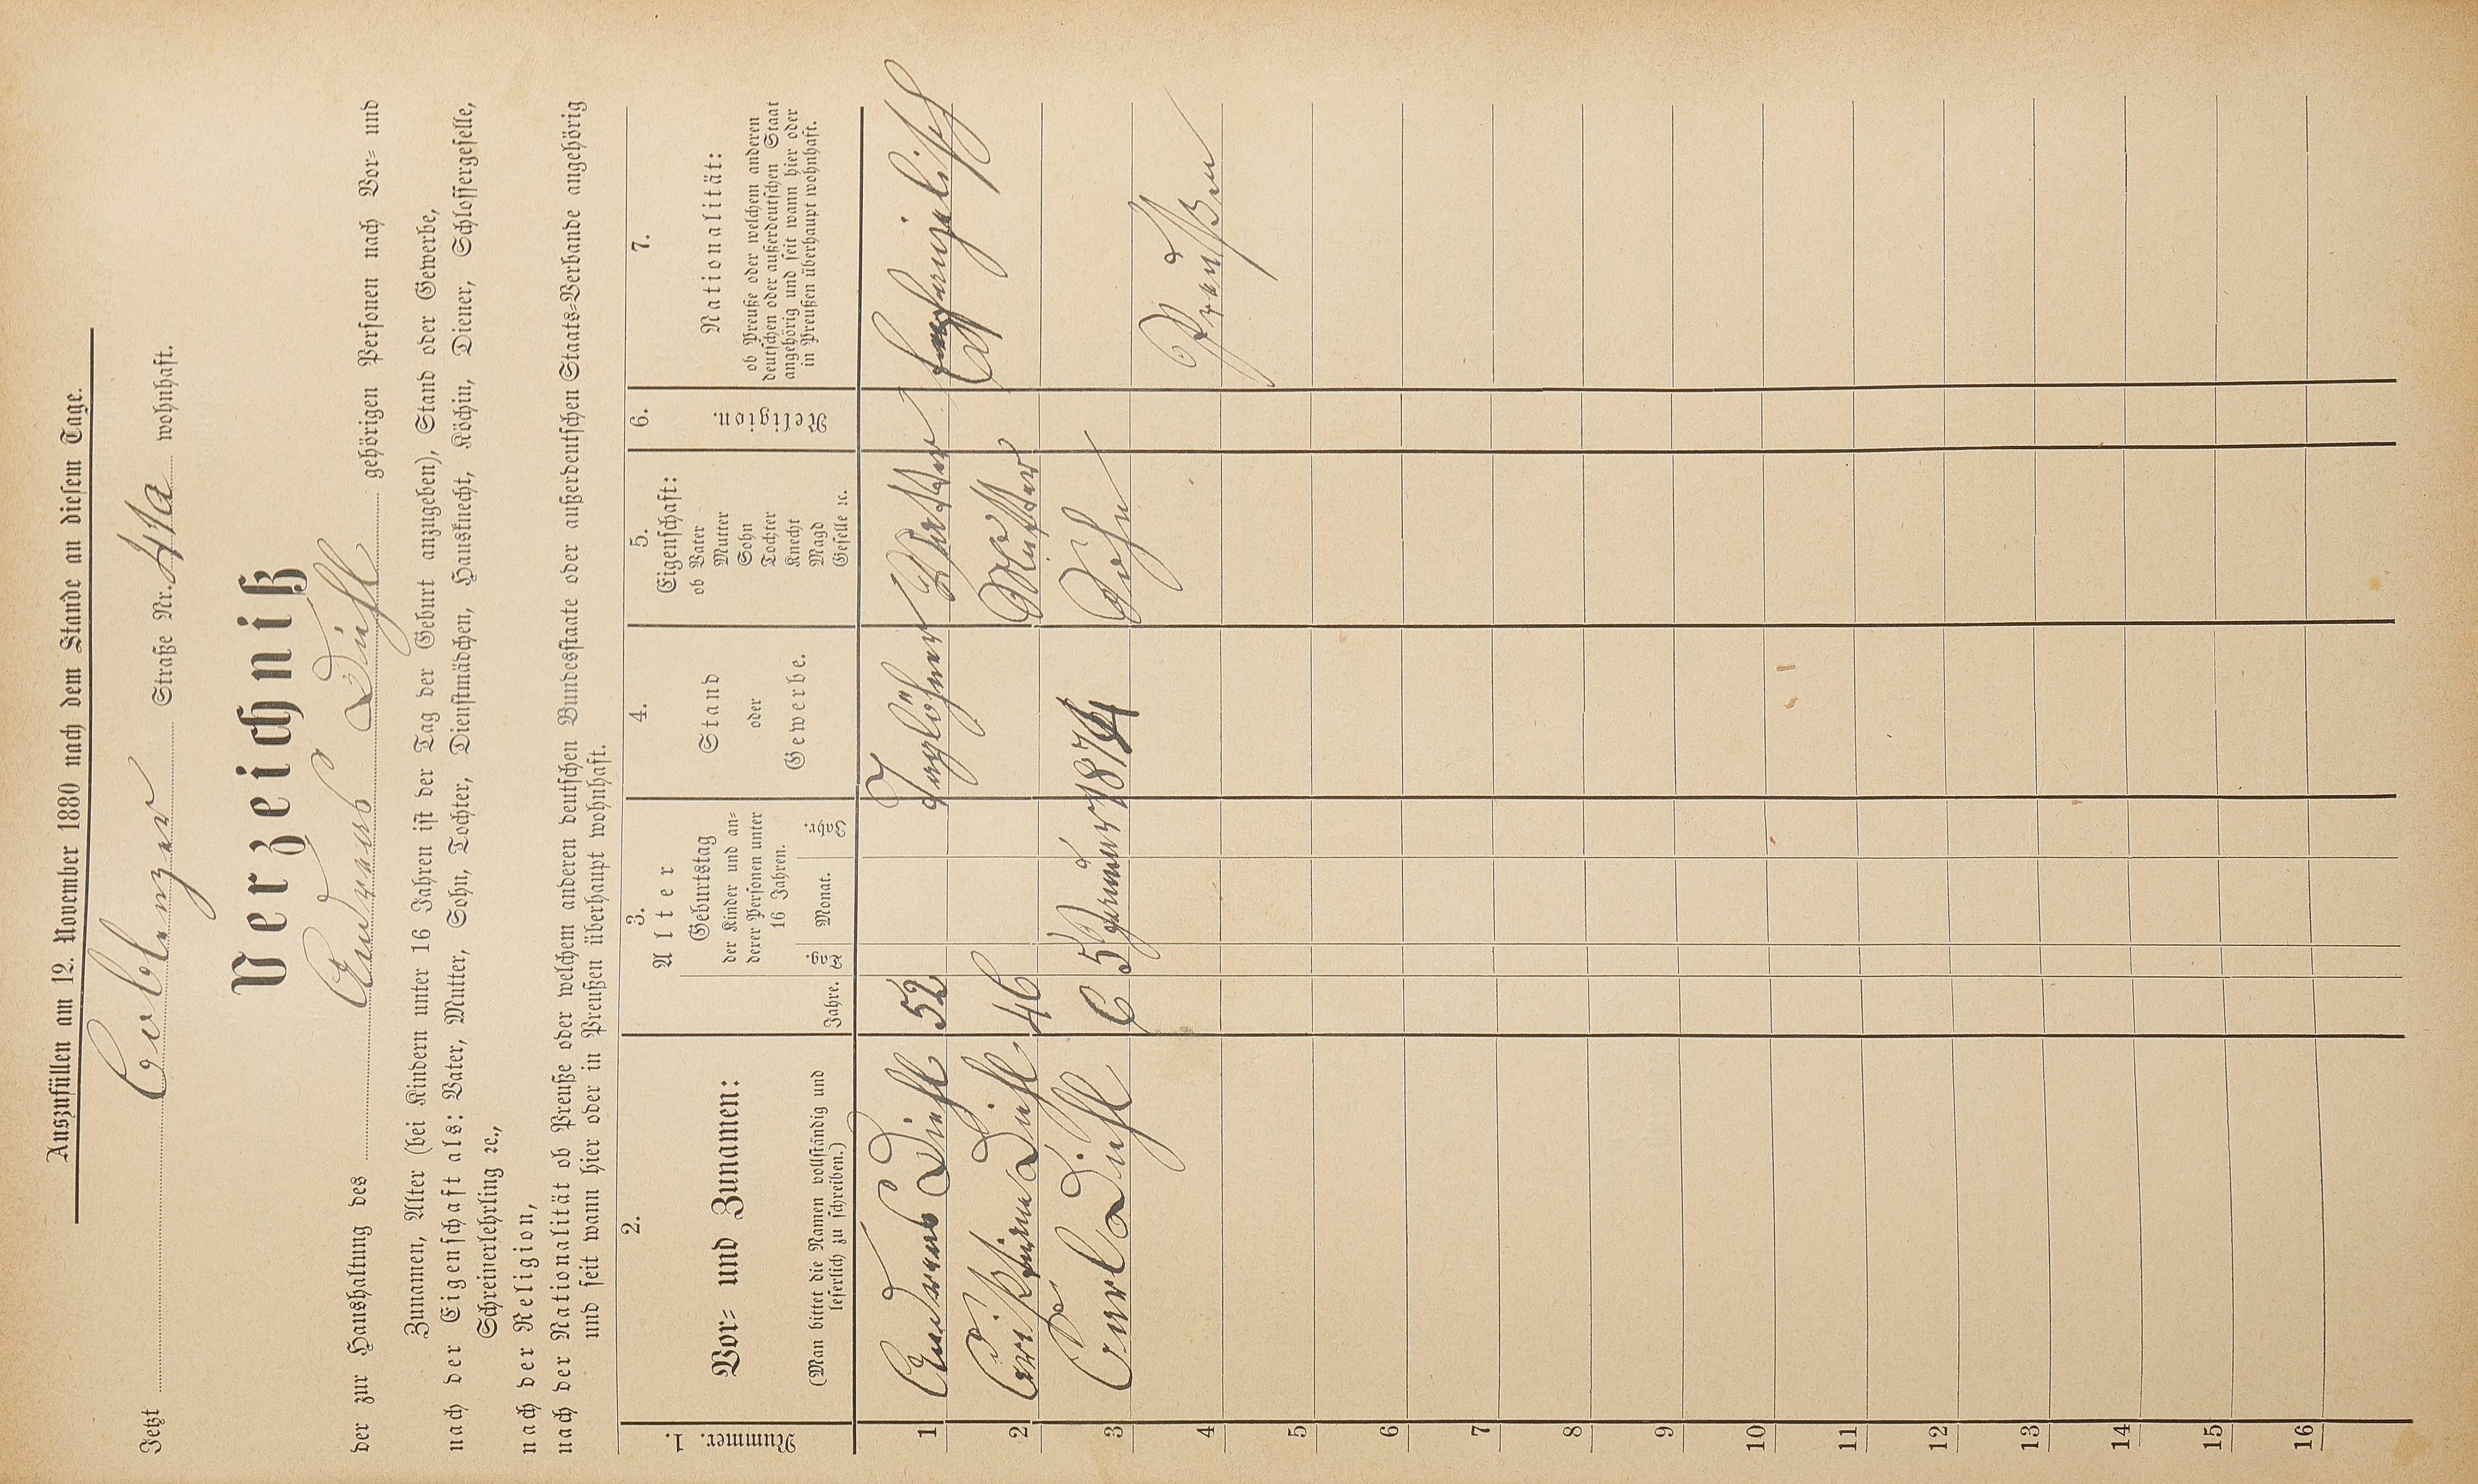 Auszufüllen am 12. November 1880 nach dem Stande an diesem Tage.
Jetzt Coblenzer Straße Nr. 41a wohnhaft.
Verzeichniß
der zur Haushaltung des Andreas Diehl gehörigen Personen nach Vor- und
Zunamen, Alter (bei Kindern unter 16 Jahren ist der Tag der Geburt anzugeben), Stand oder Gewerbe,
nach der Eigenschaft als: Vater, Mutter, Sohn, Tochter, Dienstmädchen, Hausknecht, Köchin, Diener, Schlossergeselle,
Schreinerlehrling ꝛc.,
nach der Religion,
nach der Nationalität ob Preuße oder welchem anderen deutschen Bundesstaate oder außerdeutschen Staats-Verbande angehörig
und seit wann hier oder in Preußen überhaupt wohnhaft.
1.
Nummer.
2.
Vor- und Zunamen:
(Man bittet die Namen vollständig und
leserlich zu schreiben.)
3.
Alter
Jahre.
Geburtstag
der Kinder und an-
derer Personen unter
16 Jahren.
Tag.
Monat.
Jahr.
4.
Stand
oder
Gewerbe.
5.
Eigenschaft:
ob Vater
Mutter
Sohn
Tochter
Knecht
Magd
Geselle ꝛc.
6.
Religion.
7.
Nationalität:
ob Preuße oder welchem anderen
deutschen oder außerdeutschen Staat
angehörig und seit wann hier oder
in Preußen überhaupt wohnhaft.
1 Andreas Diehl 52 Taglöhner Vater Evangelisch
2 Diehl 46 Mutter
3 Carl Diehl 6 5 1874 Sohn
4 Preußen
5
6
7
8
9
10
11
12
13
14
15
16